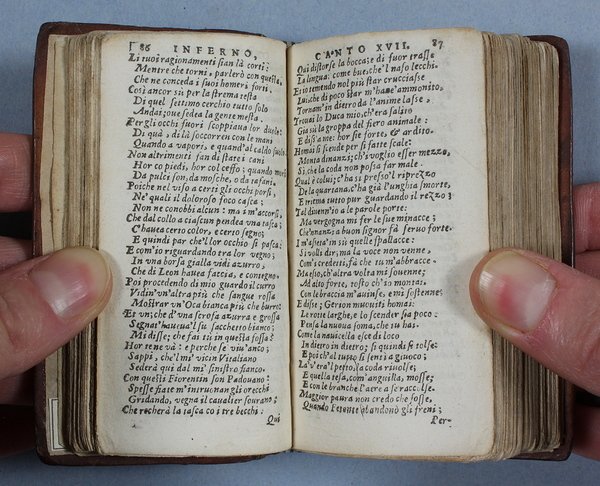 86 INFERNO,
Li tuoi ragionamenti sian là corti:
Mentre che torni, parlerò con questa,
Che ne conceda i suoi homeri forti.
Così ancor sù per la strema testa
Di quel settimo cerchio tutto solo
Andai; oue sedea la gente mesta.
Per gli occhi fuori scoppiaua lor duolo:
Di quà, di là soccorren con le mani
Quando a vapori, e quand'al caldo suolo.
Non altrimenti fan di state i cani
Hor co piedi, hor col ceffo; quando morsi
Da pulci son, da mosche, o da tafani.
Poiche nel viso a certi gli occhi porsi,
Ne' quali il doloroso foco casca;
Non ne conobbi alcun: ma i m'accorsi,
Che dal collo a ciascun pendea vna tasca;
C'hauea certo color, e certo segno;
E quindi par che'l lor occhio si pasca:
E com'io riguardando tra lor vegno;
In vna borsa gialla vidi azurro,
Che di Leon hauea faccia, e contegno.
Poi procedendo di mio guardo il curro
Vidin' vn'altra più che sangue rossa
Mostrar vn'Oca bianca più che burro:
Et vn; che d'vna scrofa azurra e grossa
Segnat' hauea'l su sacchetto bianco;
Mi disse; che fai tu in questa fossa?
Hor te ne và: e perche se viu'anco;
Sappi, che'l mi' vicin Vitaliano
Sederà qui dal mi' sinistro fianco.
Con questi Fiorentin son Padouano:
Spesse fiate m'intruonan gli orecchi
Gridando, vegna il caualier sourano;
Che recherà la tasca co i tre becchi:
Qui
CANTO XVII. 87
Qui distorse la bocca; e di fuor trasse
La lingua: come bue, che'l naso lecchi.
Et io temendo nol più star crucciasse
Lui, che di poco star m'hauea ammonito,
Tornam' in dietro da l'anime lasse,
Trouai lo Duca mio, ch'era salito
Già sù la groppa del fiero animale:
E diss'a me: hor sie forte, & ardito.
Homai si scende per sì fatte scale:
Monta dinanzi; ch'i voglio esser mezzo,
Sì, che la coda non possa far male.
Qual è colui; c'ha sì presso'l riprezzo
De la quartana, c'ha già l'vnghia smorte,
E triema tutto pur guardando il rezzo;
Tal diuenn'io a le parole porte:
Ma vergogna mi fer le sue minacce;
Ch'enanz' a buon signor fà seruo forte.
I m'assetai in sù quelle spallacce:
Sì volli dir, ma la voce non venne,
Com'i credetti, fà che tu m'abbracce.
Ma esso, ch'altra volta mi souenne;
Ad alto forte, tosto ch'io montai,
Con le braccia m'auinse, e mi sostenne:
E disse; Gerion muouiti homai:
Le rote larghe, e lo scender sia poco:
Pensa la nuoua soma, che tu hai.
Come la nauicella esce di loco
In dietro in dietro; sì quindi si tolse:
E poi ch'al tutto si sentì a giuoco;
Là 'v'era'l petto, la coda riuolse;
E quella tesa, com'anguilla, mosse;
E con le branche l'aere a se raccolse.
Maggior paura non credo che fosse,
Quando Fetonte abandonò gli freni;
Per-